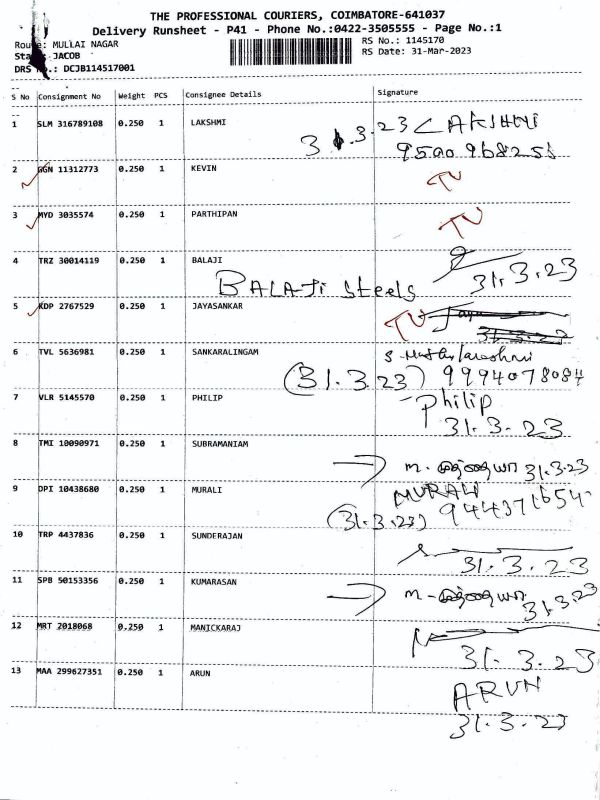 THE PROFESSIONAL COURIERS, COIMBATORE-641037
Delivery Runsheet - P41 - Phone No.:0422-3505555 - Page No.:1
Route: MULLAI NAGAR
RS No.: 1145170
JACOB
RS Date: 31-Mar-2023
DRS No.: DCJB114517001
S No Consignment No Weight PCS Consignee Details Signature
1 SLM 316789108 0.250 1 LAKSHMI
31.3.23 LAKSHMI
9500968255
2 GGN 11312773 0.250 1 KEVIN TU
3 MYD 3035574 0.250 1 PARTHIPAN TU
4 TRZ 30014119 0.250 1 BALAJI
BALAJI Steels 31.3.23
5 KDP 2767529 0.250 1 JAYASANKAR TU
31.3.23
6 TVL 5636981 0.250 1 SANKARALINGAM
(31.3.23) 9994078084
7 VLR 5145570 0.250 1 PHILIP Philip
31.3.23
8 TMI 10090971 0.250 1 SUBRAMANIAM
31.3.23
9 DPI 10438680 0.250 1 MURALI MURALI
(31.3.23)
10 TRP 4437836 0.250 1 SUNDERAJAN
31.3.23
11 SPB 50153356 0.250 1 KUMARASAN
31.3.23
12 MRT 2018068 0.250 1 MANICKARAJ
31.3.23
13 MAA 299627351 0.250 1 ARUN ARUN
31.3.23